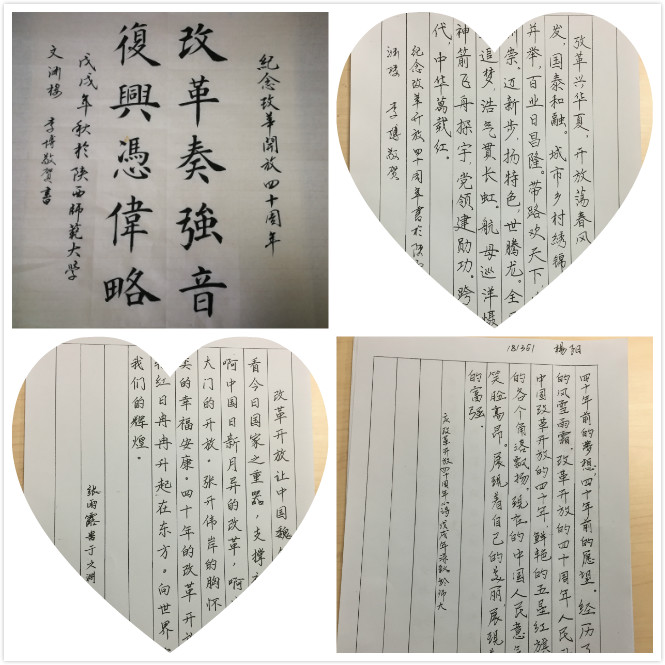 纪念改革開放四十周年
改革奏強音
復興憑偉略
戊戌年秋於陕西師範大學
文渊楼 李博敬賀書
改革兴华夏，开放荡春风
发，国泰和融。城市乡村绣锦
并举，百业日昌隆。带路欢天下，
崇。迈新步，扬特色，世腾龙。全
追梦，浩气貫长虹。航母巡洋
神箭飞舟探宇，党领建勋功。跨
代，中华萬载红。
纪念改革开放四十周年書於陕
李 敬贺
改革开放让中国
看今日国家之重器，支撑
啊中国日新月异的改革，啊
大门的开放。张开伟岸的胸怀
的幸福安康。四十年的改革开
红日冉冉升起在东方。向世界
我们的辉煌。
张雨露书于文渊
181351 楊
四十年前的梦想，四十年前的愿望。经历了
的风雪雨霜，改革开放的四十周年人民
中国改革开放的四十年，鲜艳的五星红旗
的各个角落飘扬。现在的中国人民意气
笑脸高昂。展现着自己的美丽展现
的富强。
庆改革开放四十周年 戊戌年 於师大